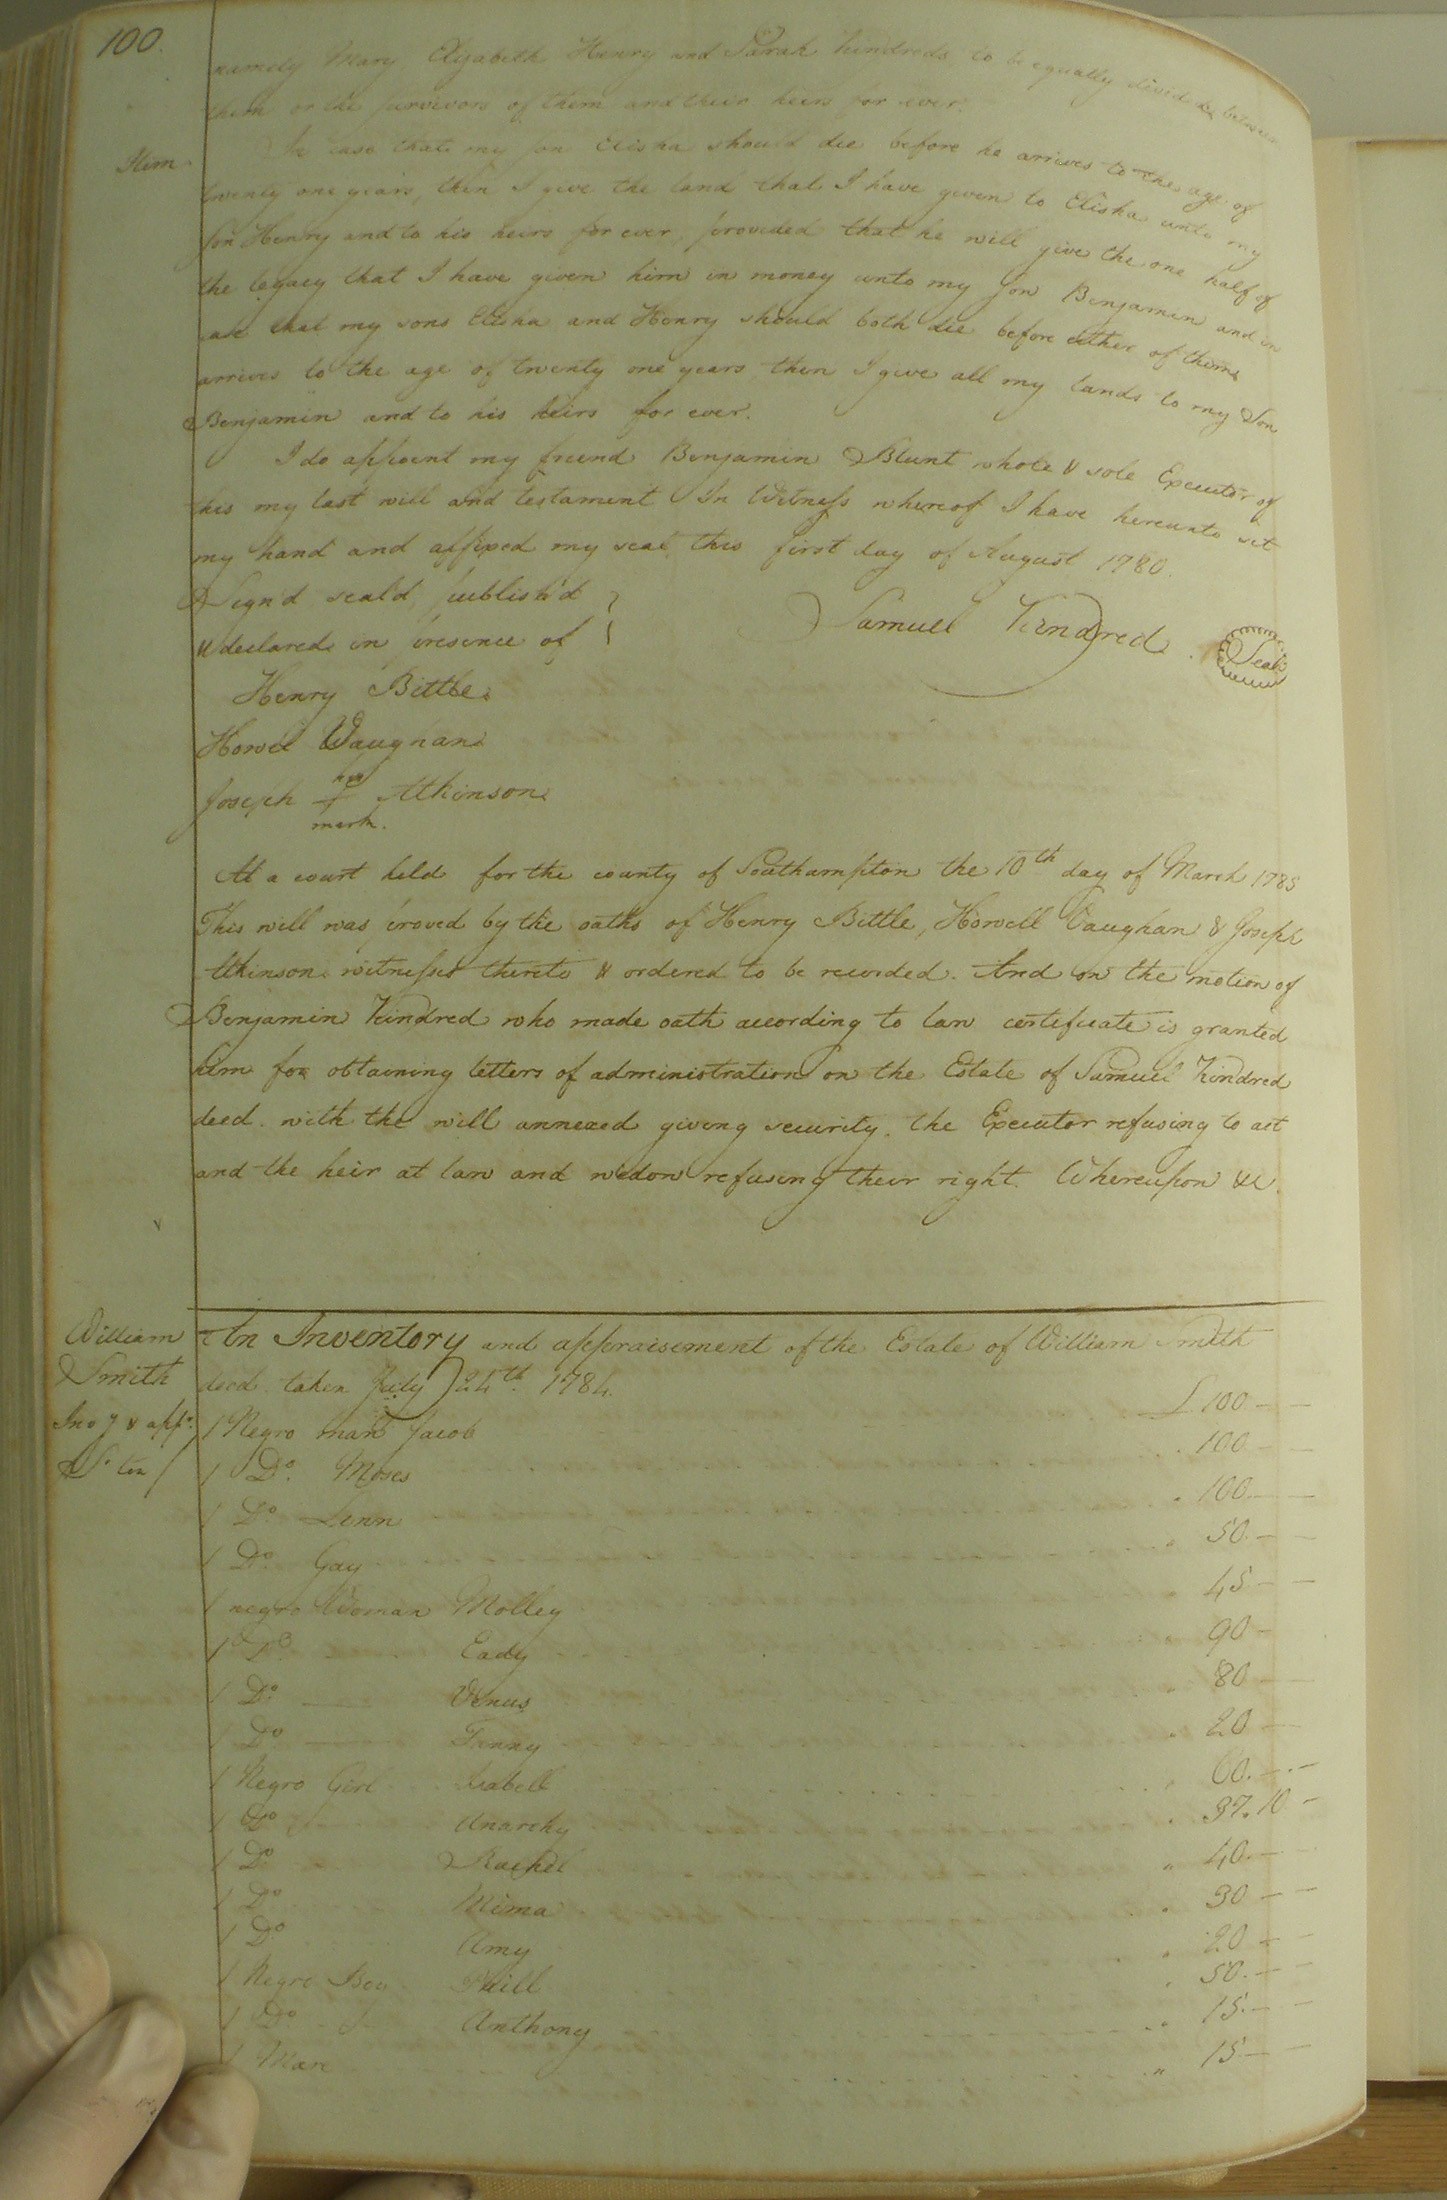 100.
namely Mary Elizabeth Henry and Sarah Kindreds to be equally divided between
them or the survivors of them and their heirs for ever.
Item In case that my son Elisha should die before he arrives to the age of
twenty one years, then I give the land that I have given to Elisha unto my
son Henry and to his heirs for ever, provided that he will give the one half of
the legacy that I have given him in money unto my son Benjamin and in
case that my sons Elisha and Henry should both die before either of them
arrives to the age of twenty one years then I give all my lands to my Son
Benjamin and to his heirs for ever.
I do appoint my friend Benjamin Blunt whole & sole Executor of
this my last will and testament In Witness whereof I have hereunto set
my hand and affixed my seal this first day of August 1780.
Sign'd seal'd publish'd
& declared in presence of
Samuel Kindred Seal
Henry Bittle
Howel Vaughan
Joseph his + mark. Atkinson
At a court held for the county of Southampton the 10th day of March 1785
This will was proved by the oaths of Henry Bittle, Howell Vaughan & Joseph
Atkinson witnesses thereto & ordered to be recorded. And on the motion of
Benjamin Kindred who made oath according to law certificate is granted
him for obtaining letters of administration on the Estate of Samuel Kindred
decd. with the will annexed giving security, the Executor refusing to act
and the heir at law and widow refusing their right. Whereupon &c.
William
Smith
Invy & appt.
An Inventory and appraisement of the Estate of William Smith
decd. taken July 24th. 1784.
1 Negro man Jacob £ 100 — —
1 Do. Moses 100 — —
1 Do. Lenn 100 — —
1 Do. Gay 50 — —
1 negro Woman Molley 45 — —
1 Do Eady 90 —
1 Do. — Venus 80 — —
1 Do — Fanny 20 —
1 Negro Girl Isabell 60. — . —
1 Do Anarchy 37. 10 —
1 Do Rachel 40. —
1 Do. Mima 30 — —
1 Do Amy 20 — —
1 Negro Boy Phill 50. — —
1 Do Anthony 15. — —
1 Mare 15 — —